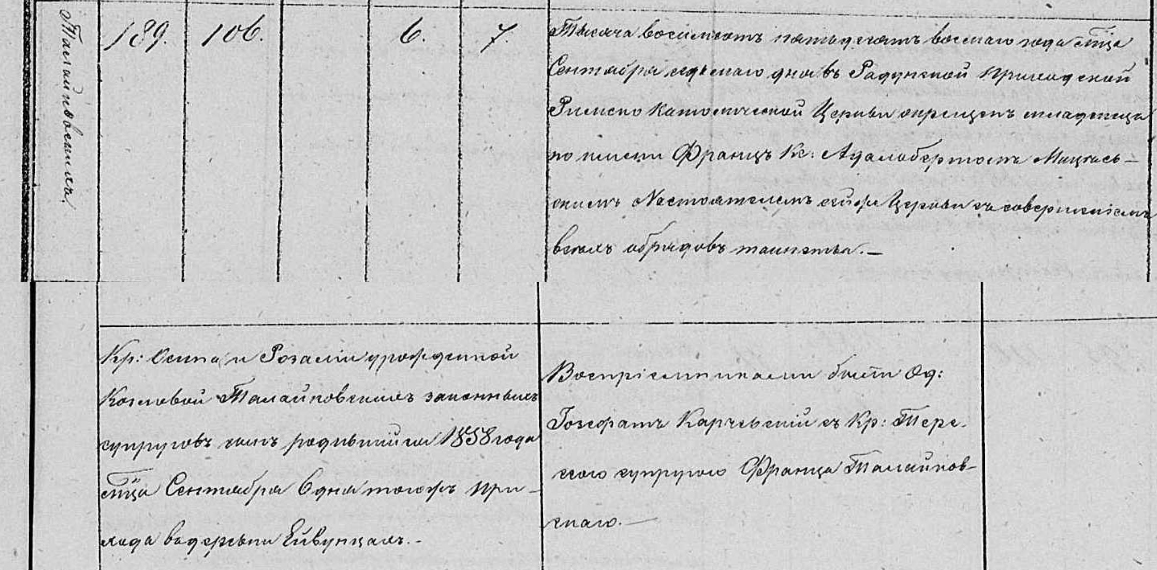 Талайковскихъ
189. 106. 6. 7
Тысяча восемсотъ пятьдесятъ восмаго года мца
Сентября седьмаго дня въ Радунской Приходской
Римско Католической Церкви окрещенъ младенецъ
по имени Францъ Кс: Адалбертомъ Мицкев-
Настоятелемъ сей же Церкви съ совершеніемъ
всехъ обрядовъ таинства. —
Кр: Осипа и Розаліи урожденной
Козловой Талайковскихъ законныхъ
супруговъ сынъ родившійся 1858 года
мца Сентября 6 дня тогожъ При-
хода въ деревни Ейвунцахъ. -
Воспріемниками были Од:
Іозефатъ Карчевскій съ Кр: Тере-
зею супругою Франца Талайков-
скаго. —